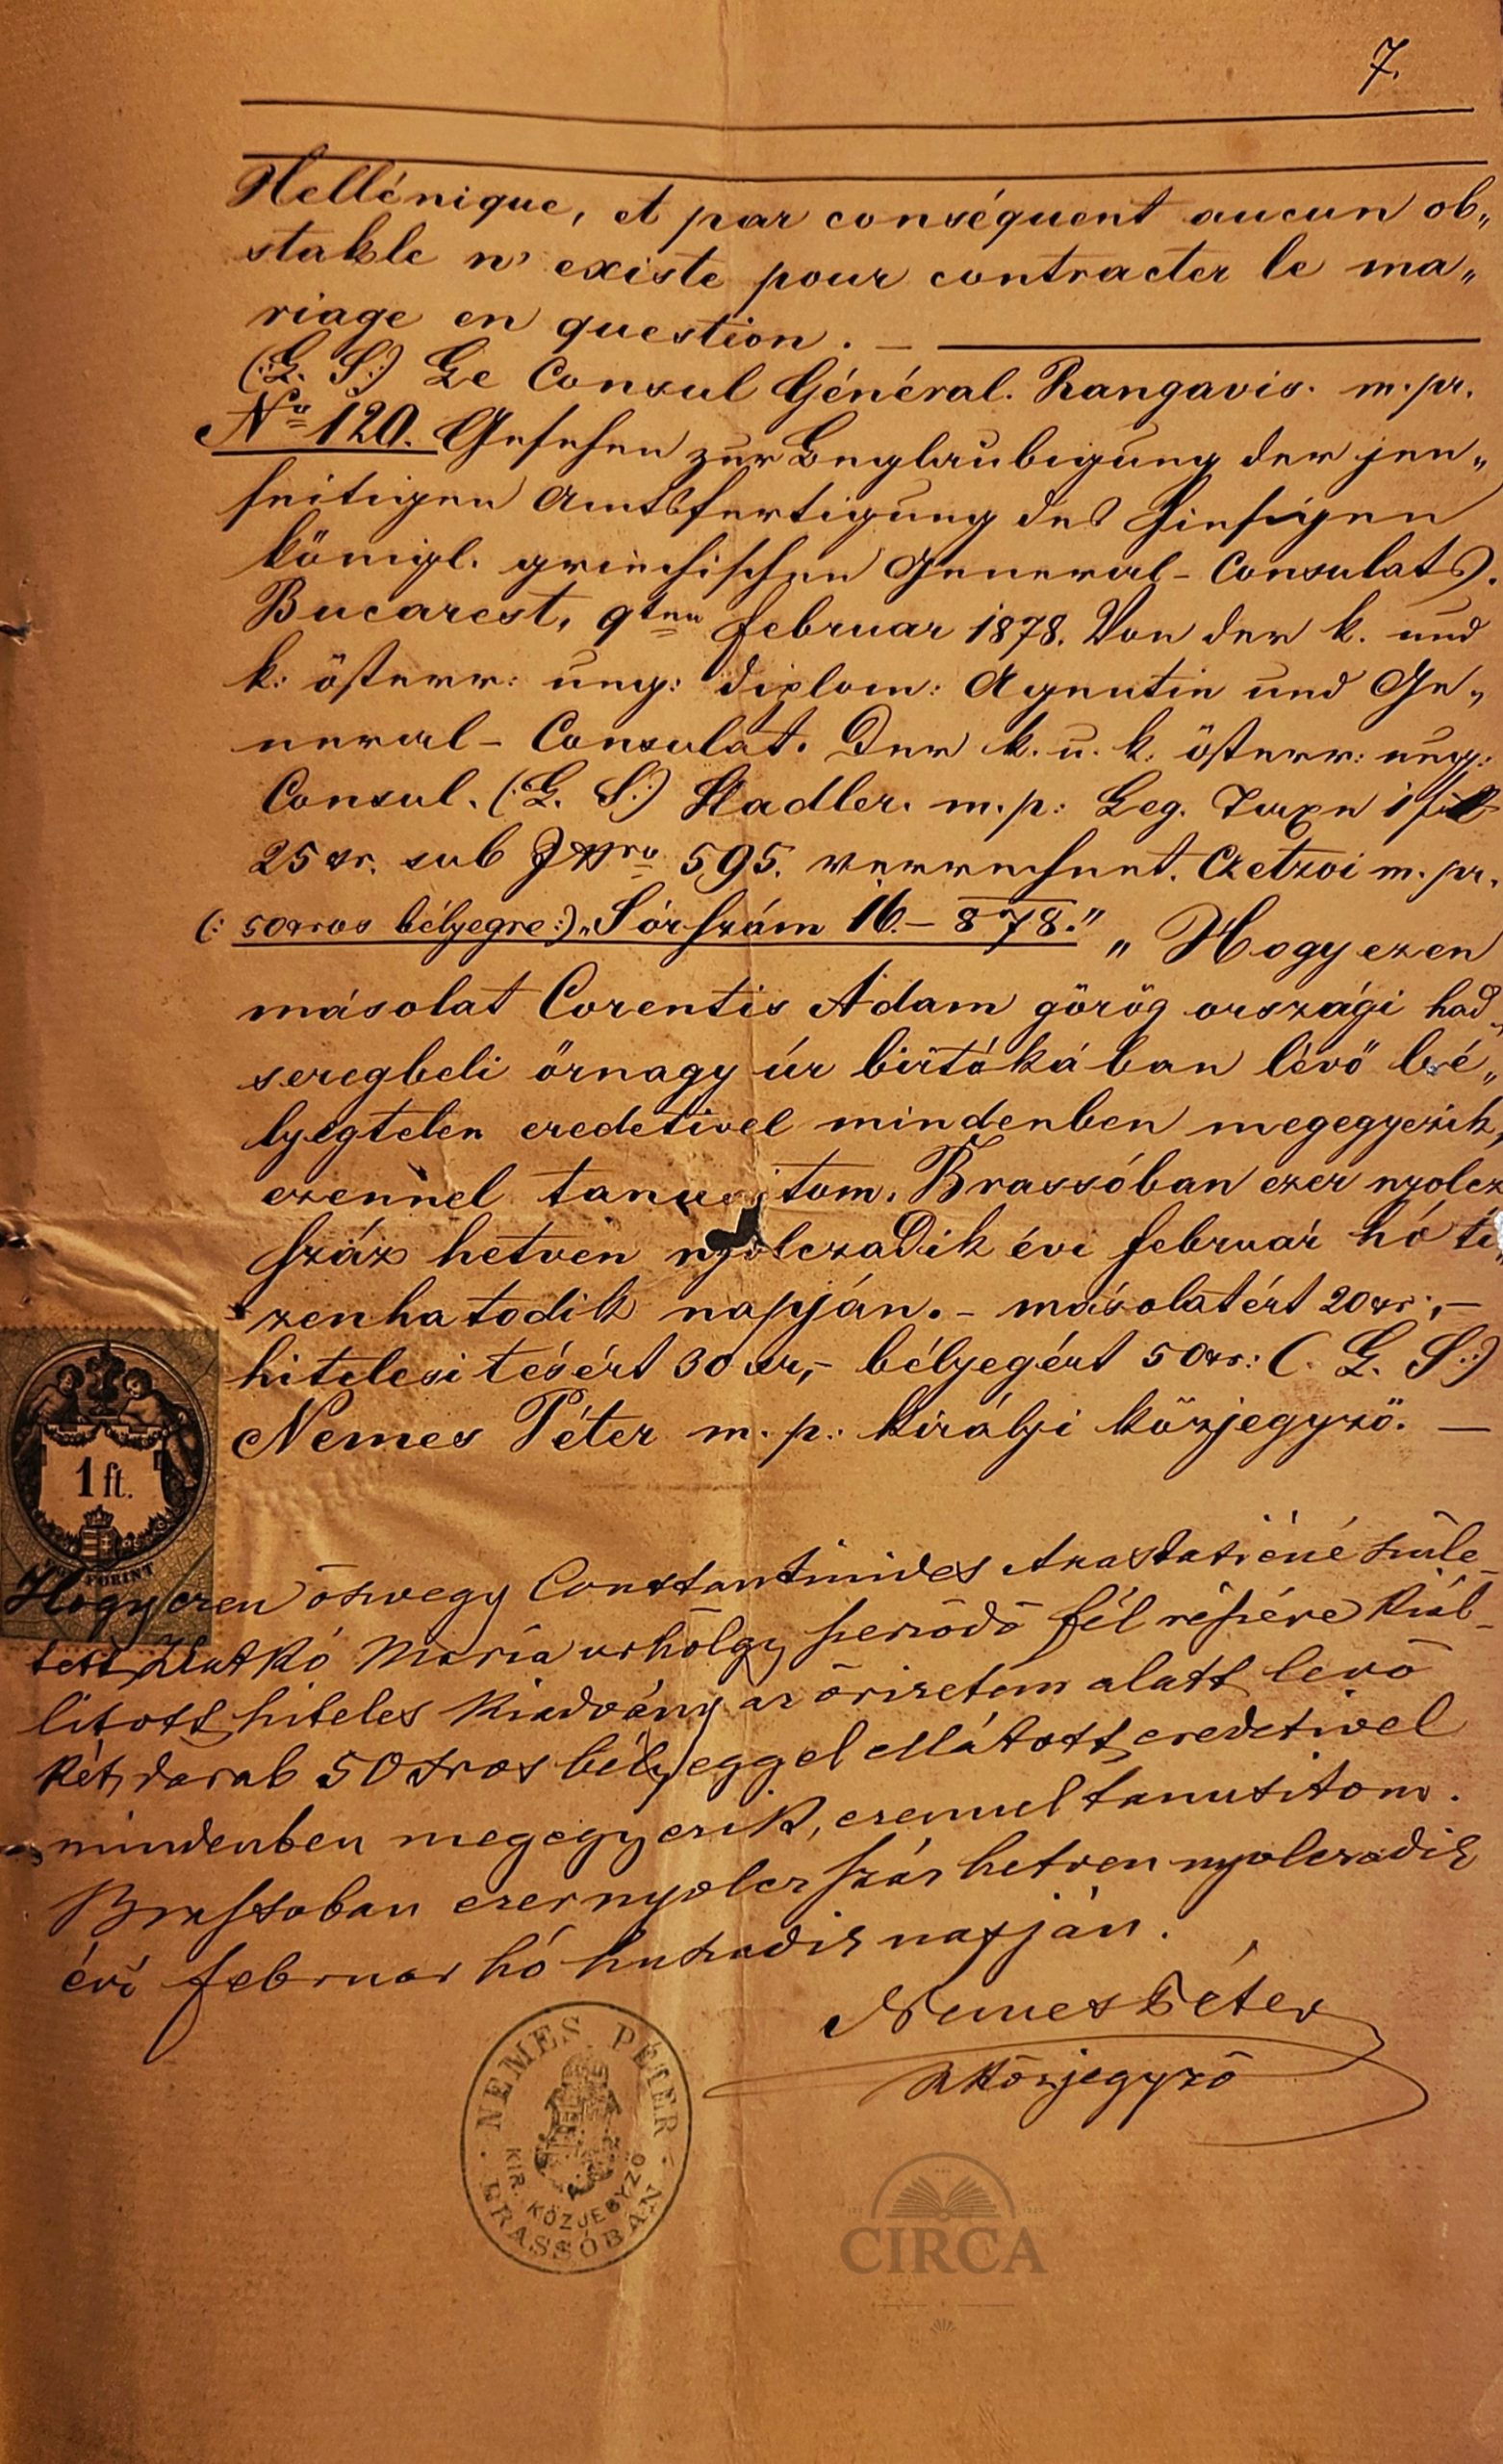 7.
Hellénique, et par conséquent aucun ob„
stakle n' existe pour contracter le ma„
riage en question. —
(:L. S:) Le Consul Général. Rangavis. m. pr.
No 120. Gesehen zur Beglaubigung der jen„
seitigen Amtsfertigung des hiesigen
königl. griechischen General-Consulats.
Bucarest, 9ten Februar 1878. Von der k. und
k: österr: ung: diplom: Agentie und Ge„
neral-Consulat. Der k. u. k. österr: ung:
Consul. (:L. S.:) Stadler. m. p: Leg. Taxe 1
25 xr. sub 595. verrechnet. m. pr.
(: 50 xros bélyegre:) „Sórszám 16. – 878." „Hogy ezen
másolat Corentis Adam görög országi had„
seregbeli örnagy úr birtokában lévö bé„
lyegtelen eredetivel mindenben megegyezik,
ezennel tanusitom. Brassóban ezer nyolcz
száz hetven nyolczadik évi február hó ti„
zenhatodik napján. – másolatért 20 xr. –
hitelesitésért 30 xr, – bélyegért 50 xr: (:L. S.:)
Nemes Péter m. p. királyi közjegyzö. —
1 ft.
EGY FORINT
Hogy ezen özvegy Constantinides Anastasiéné szüle-
tett Zlatkó Mária urhölgy szerzödö fél részére kiál-
litott hiteles kiadvány az örizetem alatt levö
két darab 50 xros bélyeggel ellátott eredetivel
mindenben megegyezik, ezennel tanusitom.
Brassoban ezernyolczszáz hetven nyolczadik
évi februar hó huszadik napján.
Nemes Péter
kközjegyzö
NEMES PÉTER
KIR. KÖZJEGYZÖ
BRASSÓBAN
CIRCA